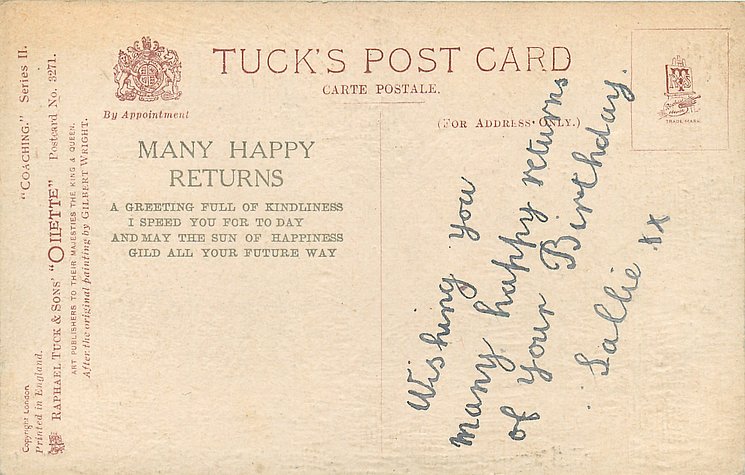 TUCK'S POST CARD
CARTE POSTALE.
By Appointment
(FOR ADDRESS ONLY.)
TRADE MARK
MANY HAPPY
RETURNS
A GREETING FULL OF KINDLINESS
I SPEED YOU FOR TO DAY
AND MAY THE SUN OF HAPPINESS
GILD ALL YOUR FUTURE WAY
Wishing you
many happy returns
of your Birthday.
Sallie xx
"COACHING." Series II.
RAPHAEL TUCK & SONS' "OILETTE" Postcard No. 3271.
ART PUBLISHERS TO THEIR MAJESTIES THE KING & QUEEN.
After the original painting by GILBERT WRIGHT.
Copyright London
Printed in England.